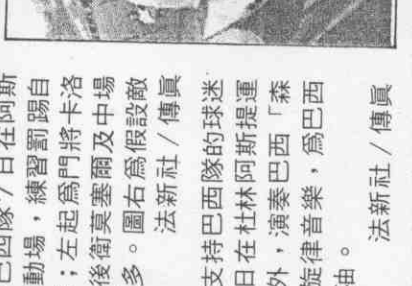 巴西隊7日在阿斯
動場，練習罰踢自
；左起爲門將卡洛
後衛莫塞爾及中場
多。圖右爲假設敵
法新社／傳眞
支持巴西隊的球迷
日在杜林阿斯提運
外，演奏巴西「森
旋律音樂，爲巴西
油。
法新社／傳眞